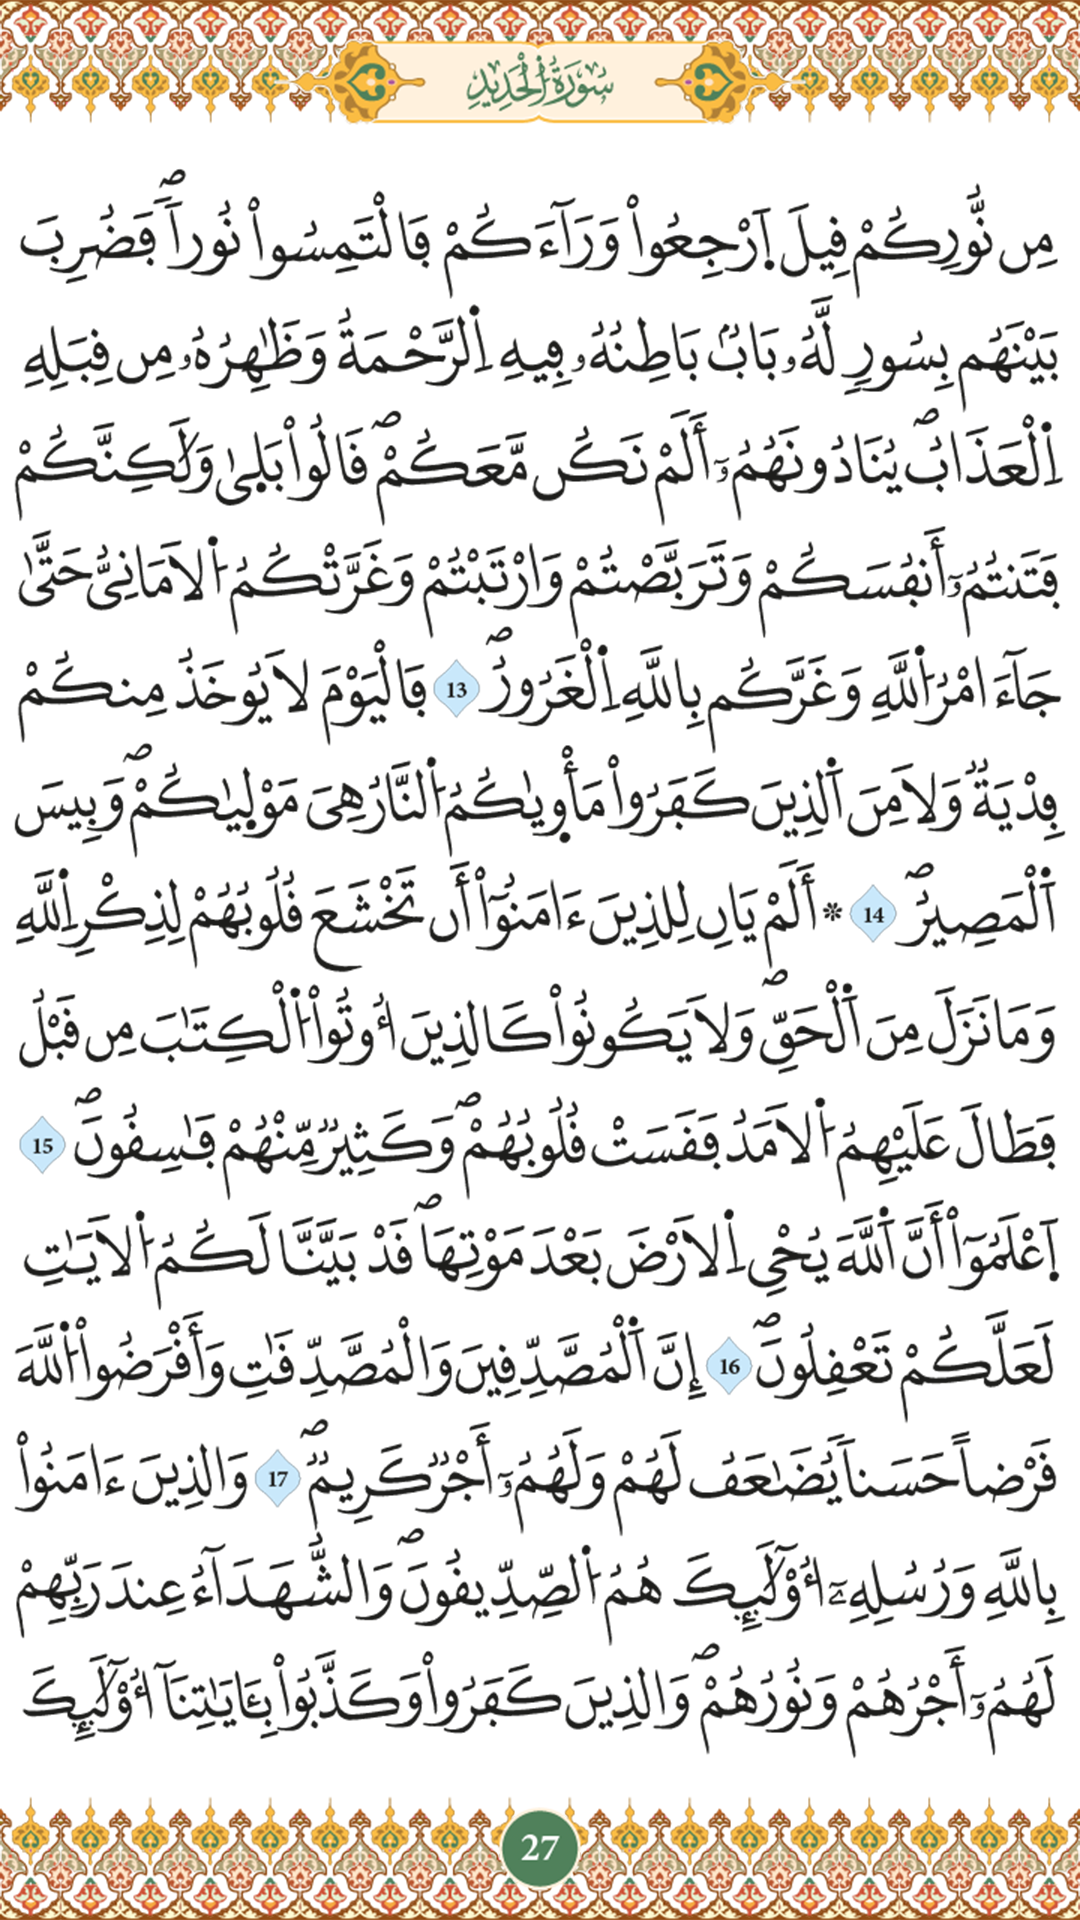 سُورَةُ الْحَدِيدِ
مِن نُّورِكُمْ قِيلَ اَرْجِعُوا۟ وَرَآءَكُمْ فَالْتَمِسُوا۟ نُوراٗۖ فَضُرِبَ
بَيْنَهُم بِسُورٖ لَّهُۥ بَابُۢ بَاطِنُهُۥ فِيهِ اِ۬لرَّحْمَةُ وَظَٰهِرُهُۥ مِن قِبَلِهِ
اِ۬لْعَذَابُۖ يُنَادُونَهُمُۥٓ أَلَمْ نَكُن مَّعَكُمْۖ قَالُوا۟ بَل۪يٰ وَلَٰكِنَّكُمْ
فَتَنتُمُۥٓ أَنفُسَكُمْ وَتَرَبَّصْتُمْ وَارْتَبْتُمْ وَغَرَّتْكُمُ اُ۬لَامَانِيُّ حَتَّىٰ
جَآءَ امْرُ اُ۬للَّهِ وَغَرَّكُم بِاللَّهِ اِ۬لْغَرُورُۖ 13 فَالْيَوْمَ لَا يُوخَذُ مِنكُمْ
فِدْيَةٞ وَلَا مِنَ اَ۬لذِينَ كَفَرُوا۟ مَأْو۪يٰكُمُ اُ۬لنَّارُ هِيَ مَوْل۪يٰكُمْۖ وَبِيسَ
اَ۬لْمَصِيرُۖ 14 * أَلَمْ يَانِ لِلذِينَ ءَامَنُوٓا۟ أَن تَخْشَعَ قُلُوبُهُمْ لِذِكْرِ اِ۬للَّهِ
وَمَا نَزَلَ مِنَ اَ۬لْحَقِّۖ وَلَا يَكُونُوا۟ كَالذِينَ أُوتُوا۟ اُ۬لْكِتَٰبَ مِن قَبْلُ
فَطَالَ عَلَيْهِمُ اُ۬لَامَدُ فَقَسَتْ قُلُوبُهُمْۖ وَكَثِيرٞ مِّنْهُمْ فَٰسِقُونَۖ 15
اِ۪عْلَمُوٓا۟ أَنَّ اَ۬للَّهَ يُحْيِ اِ۬لَارْضَ بَعْدَ مَوْتِهَاۖ قَدْ بَيَّنَّا لَكُمُ اُ۬لَايَٰتِ
لَعَلَّكُمْ تَعْقِلُونَۖ 16 إِنَّ اَ۬لْمُصَّدِّقِينَ وَالْمُصَّدِّقَٰتِ وَأَقْرَضُوا۟ اُ۬للَّهَ
قَرْضاً حَسَناٗ يُضَٰعَفُ لَهُمْ وَلَهُمُۥٓ أَجْرٞ كَرِيمٞۖ 17 وَالذِينَ ءَامَنُوا۟
بِاللَّهِ وَرُسُلِهِۦٓ أُو۟لَٰٓئِكَ هُمُ اُ۬لصِّدِّيقُونَۖ وَالشُّهَدَآءُ عِندَ رَبِّهِمْ
لَهُمُۥٓ أَجْرُهُمْ وَنُورُهُمْۖ وَالذِينَ كَفَرُوا۟ وَكَذَّبُوا۟ بِـَٔايَٰتِنَآ أُو۟لَٰٓئِكَ
27